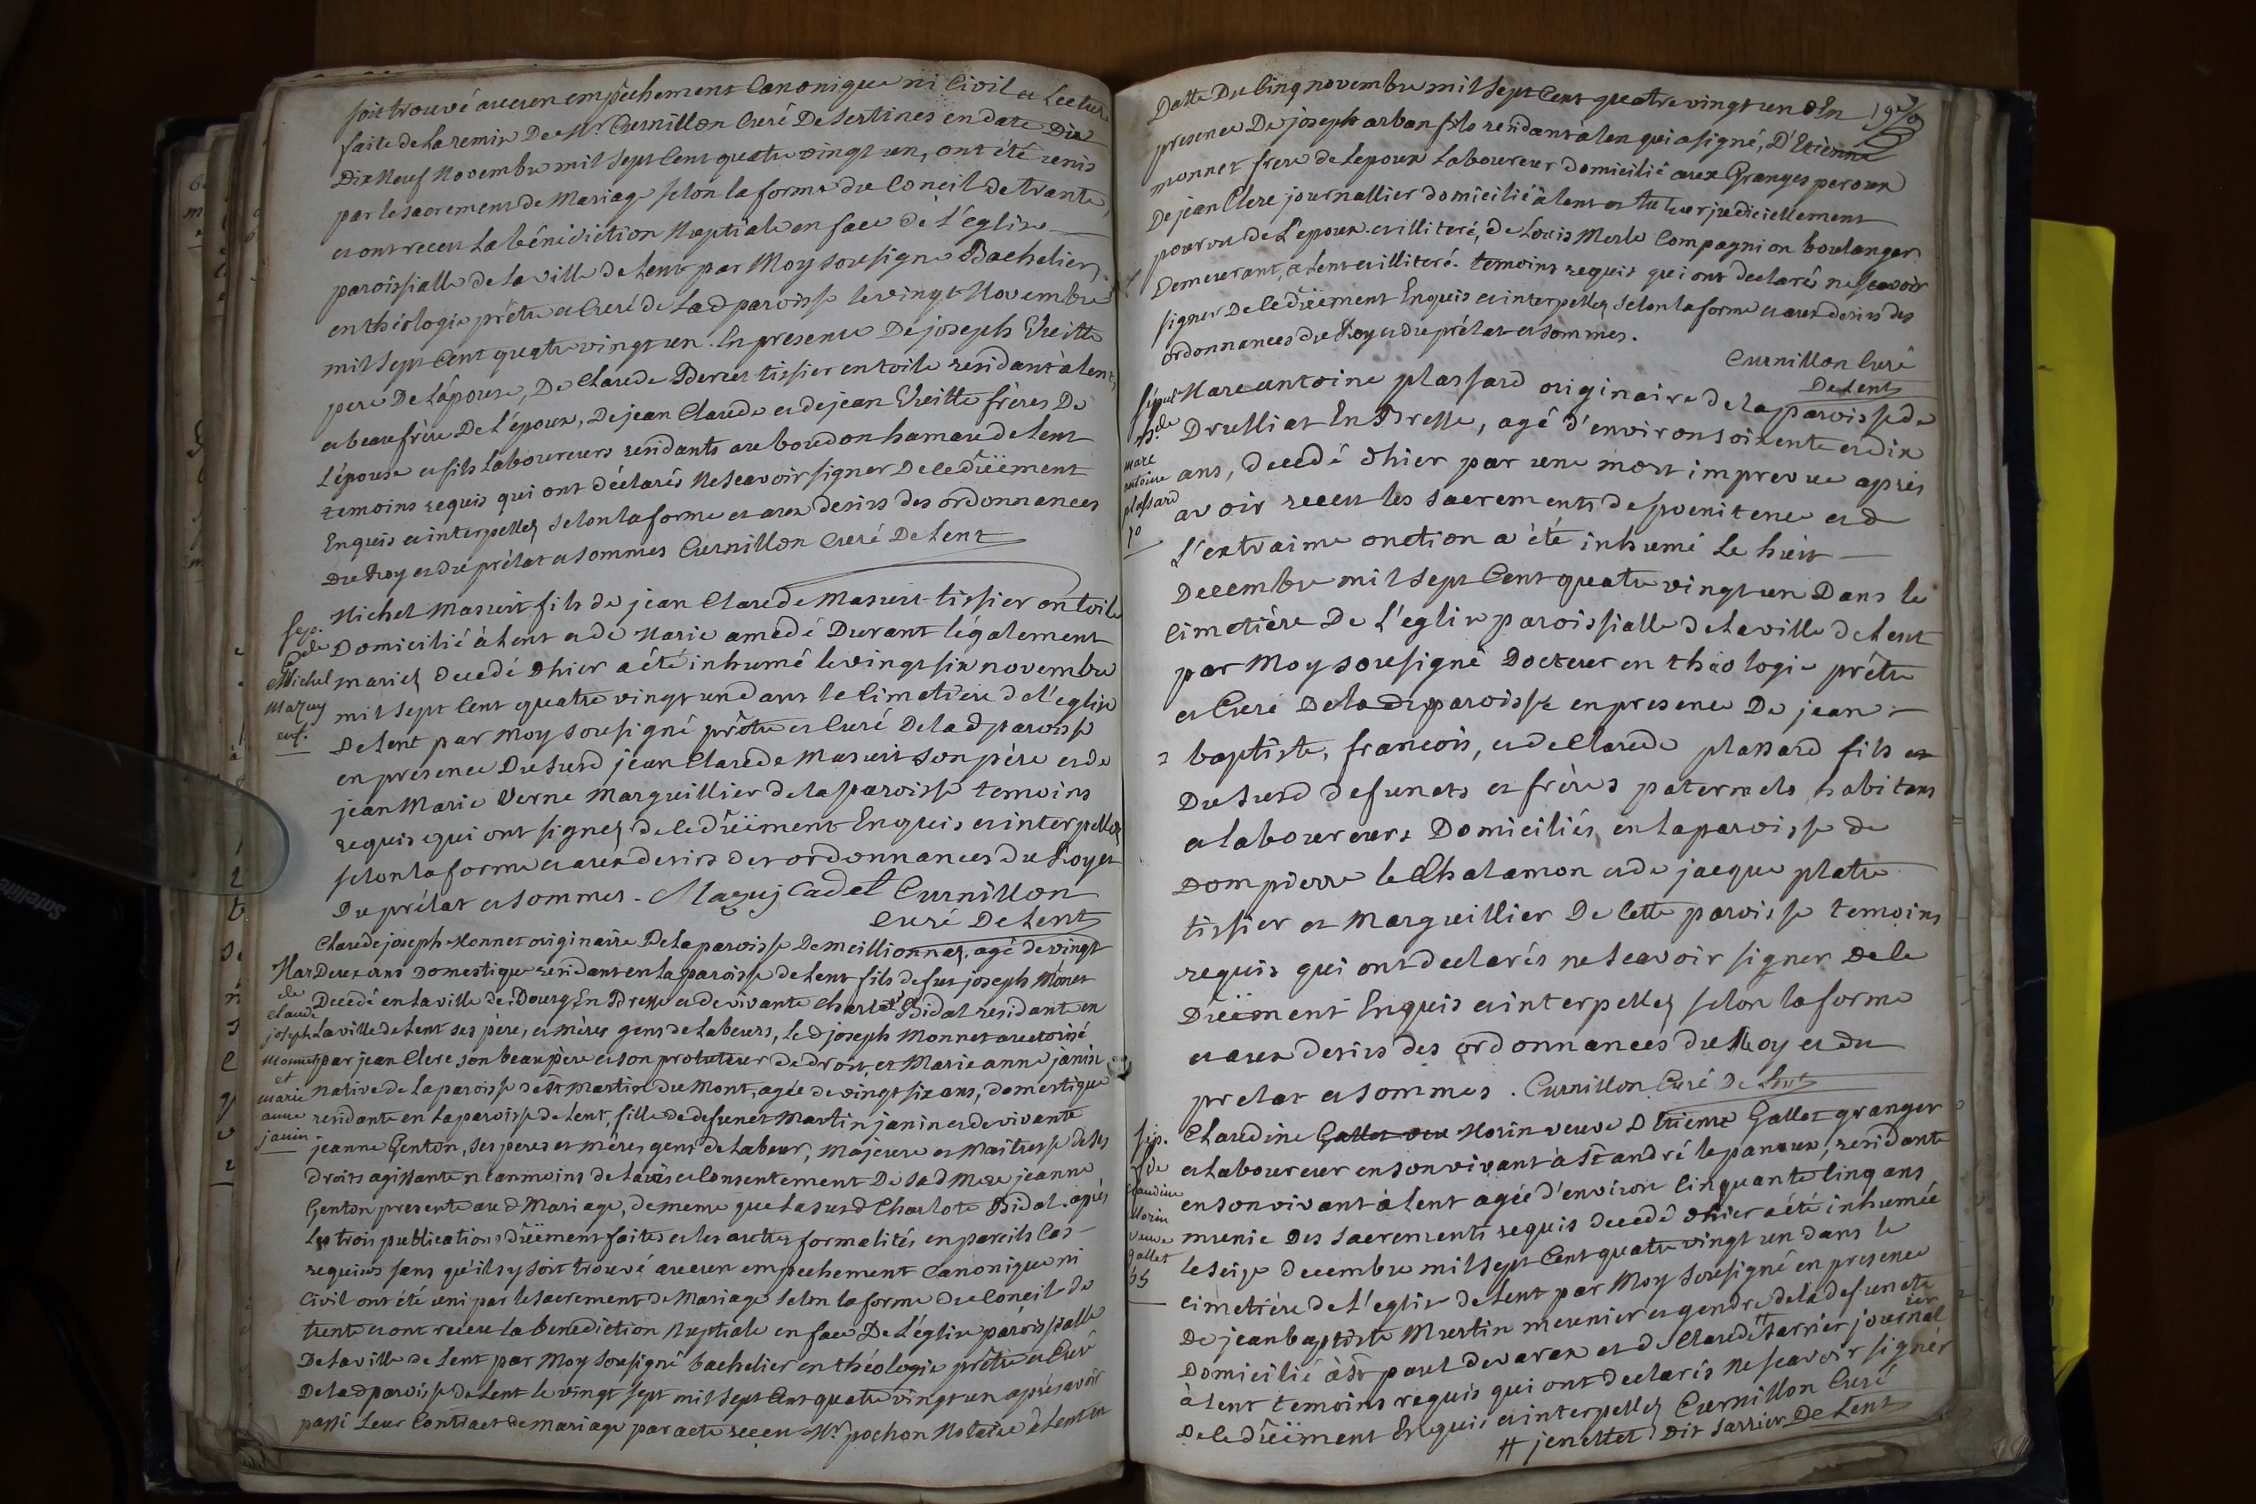 soit trouvé aucun empêchement Canonique ni Civil et Lecture
faite de La remise De Mr. Curnillon Curé De Sertines en date Du
Dix Neuf Novembre mil Sept Cent quatre vingt un, ont été unis
par le sacrement de Mariage selon la forme du Concil de trante,
et ont receu La bénédiction Nuptiale en face de L'église
paroissialle de la ville de Lent par Moy sousigné Bachelier
en théologie prêtre et Curé de Lad paroisse le vingt Novembre
mil sept Cent quatre vingt un. En presence De joseph Vieille
pere De L'épouse, De Claude Bereur tissier en toile residant à Lent,
et beaufrère De L'époux, De jean Claude et de jean Vieille frères De
L'épouse et fils Laboureurs residants au boudon hamau de Lent
temoins requis qui ont déclarés Ne Scavoir signer De ce düëment
Enquis et interpellez selon la forme et aux desirs des ordonnances
Du Roy et du prélat et sommes Curnillon Curé De Lent
Michel Masuit fils de jean Claude Masuit tissier en toile
Domicilié à Lent et de Marie amédé Durant légalement
mariez decedé d'hier a été inhumé le vingt six novembre
mil sept Cent quatre vingt un dans le Cimetière de l'eglise
De Lent par Moy sousigné prêtre et Curé De la d paroisse
en presence Du susd jean Claude Masuit son père et de
jean Marie Verne Marguillier de la paroisse temoins
requis qui ont signez de ce düëment Enquis et interpellez
selon la forme et aux desirs des ordonnances du Roy et
Du prélat et sommes. Mazuy Cadet Curnillon
Curé De Lent
Sep.
de
Michel
Mazuy
enf.
Claude joseph Monnet originaire De la paroisse De meillionnas, agé de vingt
Deux ans Domestique residant en la paroisse de Lent fils de feu joseph Monet
Decedé en la ville de Bourg En Bresse et de vivante Charlote Bidal residante en
La ville de Lent ses père, et mères gens de Labeurs, Le d joseph Monnet autorisé
par jean Clere son beau père et son protuteur de droit, et Marie anne janin
Native de la paroisse de St Martin du Mont, agée de vingt six ans, domestique
residante en la paroisse de Lent, fille de defunct Martin janin et de vivante
jeanne Genton, ses peres et mères gens de Labeur, Majeure et Maitresse de ses
droits agissante n'eanmoins de L'avis et Consentement De sad Mere jeanne
Genton presente aud Mariage, de meme que La susd Charlote Bidal. après
Les trois publications düëment faites et les autres formalités en pareils Cas
requises sans qu'il s'y soit trouvé aucun empechement Canonique ni
Civil ont été uni par le sacrement de Mariage selon la forme du Concil de
trente et ont receu la benediction Nuptiale en face De L'église paroissialle
De la ville de Lent par Moy sousigné bachelier en théologie prêtre et Curé
De la d paroisse de Lent le vingt sept mil sept Cent quatre vingt un après avoir
passé Leur Contract de mariage par acte receu Mr. pochon Notaire à Lent en
Mar
de
claude
joseph
monnet
et
marie
anne
janin
Datte Du Cinq novembre mil Sept Cent quatre vingt un. En
presence De joseph arban fils residant à Lent qui a signé, D'Etienne
monnet frere de Lepoux Laboureur domicilié aux Granges peroux
De jean Clere journallier domicilié à Lent et tuteur judiciellement
pourvu de L'epoux et illiteré, de Louis Merle Compagnion boulanger
Demeurant, à Lent et illiteré. temoins requis qui ont declarés ne scavoir
signer De ce düëment Enquis et interpellez selon la forme et aux desirs des
ordonnances du Roy et du prélat et sommes.
Curnillon Curé
De Lent
Marc antoine plassard originaire de la paroisse de
Drulliat En Bresse, agé d'environ soixente et dix
ans, decedé d'hier par une mort imprevue après
avoir receu les sacrements de poenitence et d
L'extraime onction a été inhumé Le huit
Decembre mil sept Cent quatre vingt un Dans le
Cimetière De L'eglise paroissialle de La ville de Lent
par Moy sousigné Docteur en theologie prêtre
et Curé De la d paroisse en presence De jean
baptiste, francois, et de Claude plassard fils et
Du susd defuncts et frères paternels habitans
et laboureurs Domiciliés, en la paroisse de
Dompierre le Chalamon et de jacque platre
tissier et Marguillier De Cette paroisse temoins
requis qui ont declarés ne scavoir signer De ce
Düëment Enquis et interpellez selon la forme
et aux desirs des ordonnances du Roy et du
prelat et sommes. Curnillon Curé De Lent
de
marc
antoine
plassard
70
Claudine Gallet Morin veuve D Etienne Gallet granger
et Laboureur en son vivant à St andré le panoux, residante
en son vivant à Lent agée d'environ Cinquante Cinq ans
munie Des sacrements requis decedé d'hier a été inhumée
le seize decembre mil sept Cent quatre vingt un dans le
Cimetière de L'eglise de Lent par Moy sousigné en presence
De jean baptiste Murtin meunier et gendre de la defuncte
Domicilié à St paul de varax et de Claude ++ Sarrier journal
ier
à Lent temoins requis qui ont declarés Ne scavoir signer
De ce düëment Enquis et interpellez Curnillon Curé
++ jenettet Dit Sarrier De Lent
Sep.
de
Claudine
Morin
veuve
gallet
55